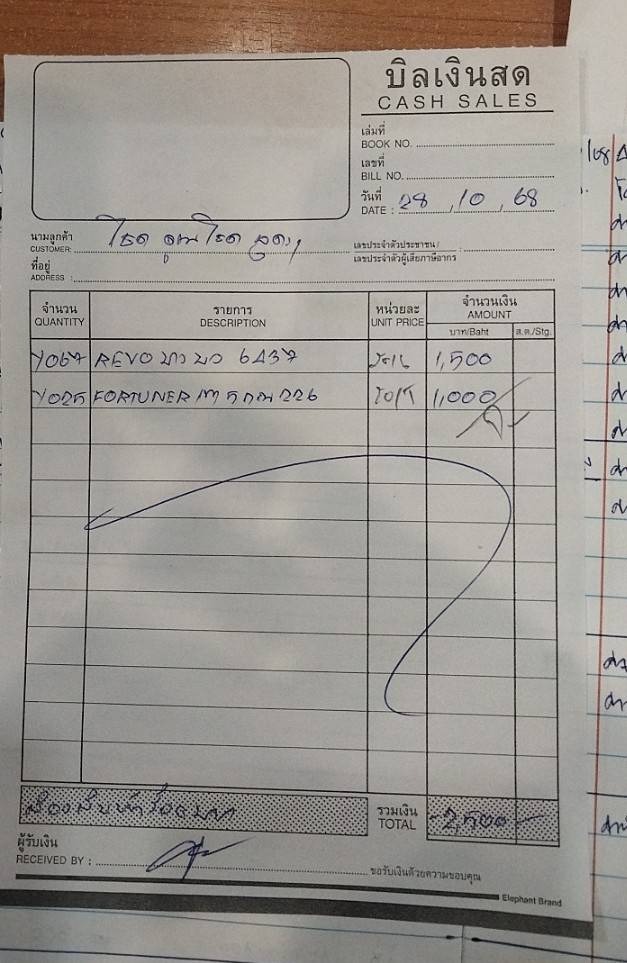 บิลเงินสด
CASH SALES
เล่มที่
BOOK NO.
เลขที่
BILL NO.
วันที่
DATE : 28 / 10 / 68
นามลูกค้า
CUSTOMER:
เลขประจำตัวประชาชน / :
เลขประจำตัวผู้เสียภาษีอากร
ที่อยู่
ADDRESS :
จำนวน รายการ หน่วยละ จำนวนเงิน
QUANTITY DESCRIPTION UNIT PRICE AMOUNT
บาท/Baht ส.ต./Stg.
Y067 REVO 6437 1,500
Y025 FORTUNER 226 1,000
สองพันห้าร้อยบาท
รวมเงิน
TOTAL 2,500 -
ผู้รับเงิน
RECEIVED BY :
ขอรับเงินด้วยความขอบคุณ
Elephant Brand